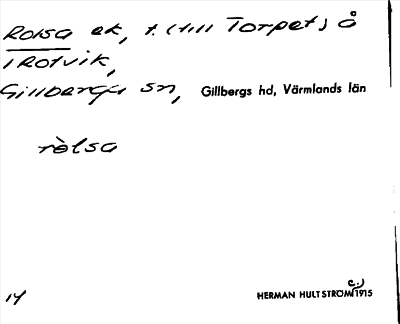 Rolsa ek, t. (till Torpet) å
i Rotvik,
Gillberga sn, Gillbergs hd, Värmlands län
ròlsa
14 HERMAN HULTSTRÖM 1915